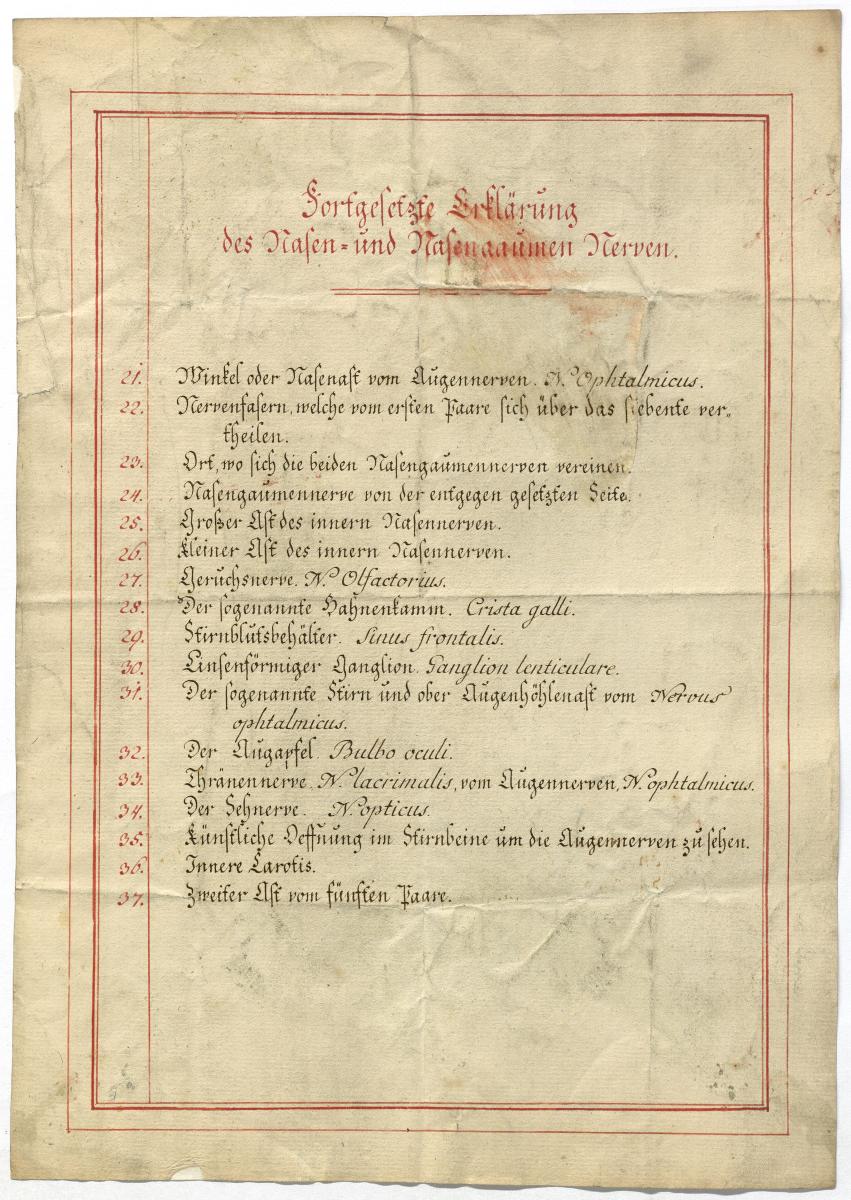 Fortgesetzte Erklärung
des Nasen= und Nasengaumen Nerven.
21. Winkel oder Nasenast vom Augennerven. N. Ophtalmicus.
22. Nervenfasern, welche vom ersten Paare sich über das siebente ver„
theilen.
23. Ort, wo sich die beiden Nasengaumennerven vereinen.
24. Nasengaumennerve von der entgegen gesetzten Seite.
25. Großer Ast des innern Nasennerven.
26. Kleiner Ast des innern Nasennerven.
27. Geruchsnerve. N. Olfactorius.
28. Der sogenannte Hahnenkamm. Crista galli.
29. Stirnblutsbehälter. Sinus frontalis.
30. Linsenförmiger Ganglion. Ganglion lenticulare.
31. Der sogenannte Stirn und ober Augenhöhlenast vom Nervus
ophtalmicus.
32. Der Augapfel. Bulbo oculi.
33. Thränennerve. N. lacrimalis, vom Augennerven, N. ophtalmicus.
34. Der Sehnerve. N. opticus.
35. Künstliche Oeffnung im Stirnbeine um die Augennerven zu sehen.
36. Innere Carotis.
37. Zweiter Ast vom fünften Paare.